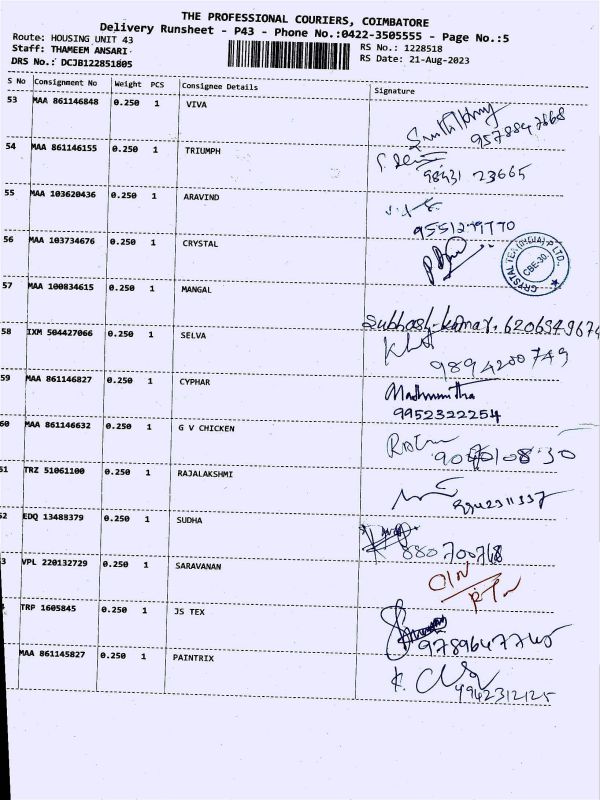 THE PROFESSIONAL COURIERS, COIMBATORE
Delivery Runsheet - P43 - Phone No.:0422-3505555 - Page No.:5
Route: HOUSING UNIT 43
Staff: THAMEEM ANSARI
DRS No.: DCJB122851805
RS No.: 1228518
RS Date: 21-Aug-2023
S No Consignment No Weight PCS Consignee Details Signature
53 MAA 861146848 0.250 1 VIVA
9578847668
54 MAA 861146155 0.250 1 TRIUMPH
98431 23665
55 MAA 103620436 0.250 1 ARAVIND
56 MAA 103734676 0.250 1 CRYSTAL
CRYSTAL TEX (INDIA) P LTD.
CBE-30.
57 MAA 100834615 0.250 1 MANGAL
Subhash kumar. 6206949674
58 IXM 504427066 0.250 1 SELVA
9894200749
59 MAA 861146827 0.250 1 CYPHAR
Madhumitha
9952322254
60 MAA 861146632 0.250 1 G V CHICKEN
51 TRZ 51061100 0.250 1 RAJALAKSHMI
52 EDQ 13488379 0.250 1 SUDHA
3 VPL 220132729 0.250 1 SARAVANAN
TRP 1605845 0.250 1 JS TEX
MAA 861145827 0.250 1 PAINTRIX